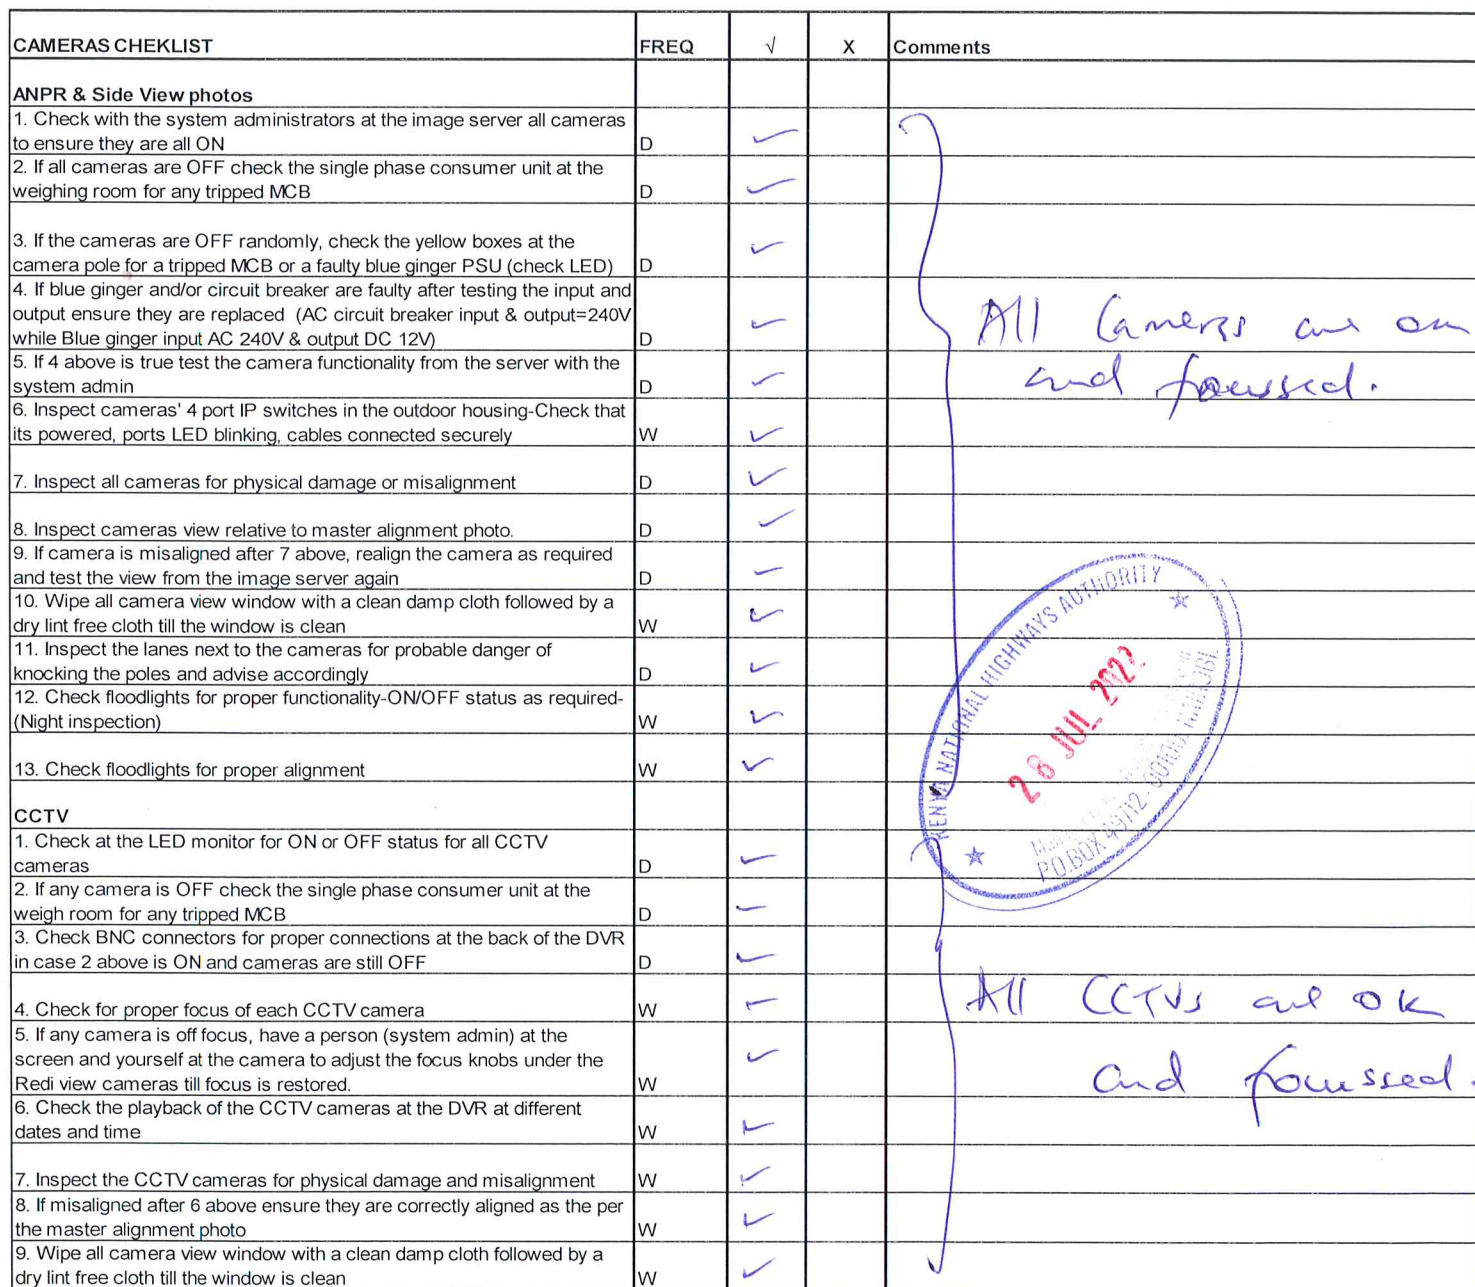 CAMERAS CHEKLIST FREQ √ X Comments
ANPR & Side View photos
1. Check with the system administrators at the image server all cameras
to ensure they are all ON D ✓
2. If all cameras are OFF check the single phase consumer unit at the
weighing room for any tripped MCB D ✓
3. If the cameras are OFF randomly, check the yellow boxes at the
camera pole for a tripped MCB or a faulty blue ginger PSU (check LED) D ✓
4. If blue ginger and/or circuit breaker are faulty after testing the input and
output ensure they are replaced (AC circuit breaker input & output=240V
while Blue ginger input AC 240V & output DC 12V) D ✓
All Cameras are on
5. If 4 above is true test the camera functionality from the server with the
system admin D ✓
and focussed.
6. Inspect cameras' 4 port IP switches in the outdoor housing-Check that
its powered, ports LED blinking, cables connected securely W ✓
7. Inspect all cameras for physical damage or misalignment D ✓
8. Inspect cameras view relative to master alignment photo. D ✓
9. If camera is misaligned after 7 above, realign the camera as required
and test the view from the image server again D ✓
10. Wipe all camera view window with a clean damp cloth followed by a
dry lint free cloth till the window is clean W ✓
11. Inspect the lanes next to the cameras for probable danger of
knocking the poles and advise accordingly D ✓
12. Check floodlights for proper functionality-ON/OFF status as required-
(Night inspection) W ✓
13. Check floodlights for proper alignment W ✓
KENYA NATIONAL HIGHWAYS AUTHORITY
28 JUL 2022
P.O.BOX 49712 - 00100, NAIROBI
CCTV
1. Check at the LED monitor for ON or OFF status for all CCTV
cameras D ✓
2. If any camera is OFF check the single phase consumer unit at the
weigh room for any tripped MCB D ✓
3. Check BNC connectors for proper connections at the back of the DVR
in case 2 above is ON and cameras are still OFF D ✓
4. Check for proper focus of each CCTV camera W ✓
All CCTVs are OK
5. If any camera is off focus, have a person (system admin) at the
screen and yourself at the camera to adjust the focus knobs under the
Redi view cameras till focus is restored. W ✓
and focussed.
6. Check the playback of the CCTV cameras at the DVR at different
dates and time W ✓
7. Inspect the CCTV cameras for physical damage and misalignment W ✓
8. If misaligned after 6 above ensure they are correctly aligned as the per
the master alignment photo W ✓
9. Wipe all camera view window with a clean damp cloth followed by a
dry lint free cloth till the window is clean W ✓